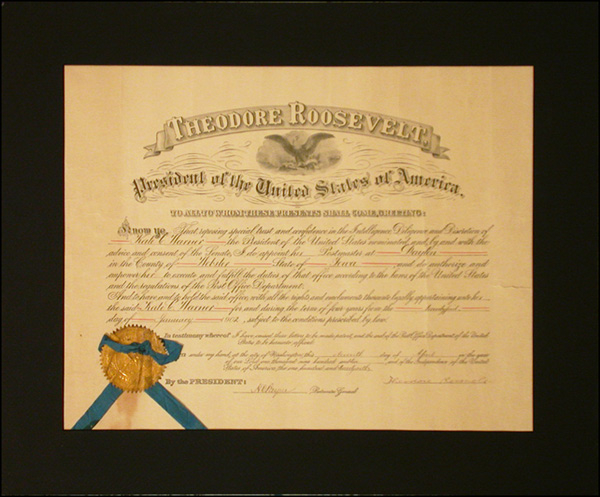 THEODORE ROOSEVELT,
President of the United States of America.
TO ALL TO WHOM THESE PRESENTS SHALL COME, GREETING:
Know ye, That reposing special trust and confidence in the Intelligence, Diligence and Discretion of
Kate C. Warner the President of the United States nominated, and by and with the
advice and consent of the Senate, I do appoint her Postmaster at
in the County of State of Iowa and do authorize and
empower her to execute and fulfill the duties of that office according to the laws of the United States
and the regulations of the Post Office Department.
And to have and to hold the said office, with all the rights and emoluments thereunto legally appertaining unto her
the said Kate C. Warner for and during the term of four years from the
day of January 1902, subject to the conditions prescribed by law.
In testimony whereof I have caused these letters to be made patent, and the seal of the Post Office Department of the United
States to be hereunto affixed.
under my hand, at the city of Washington, this day of in the year
of our Lord one thousand nine hundred and of the Independence of the United
States of America, the one hundred and
By the PRESIDENT:
Postmaster General